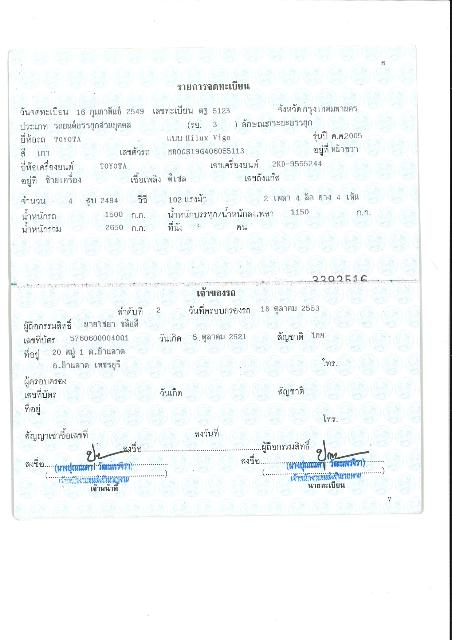 6
รายการจดทะเบียน
วันจดทะเบียน 16 กุมภาพันธ์ 2549 เลขทะเบียน 5123 จังหวัดกรุงเทพมหานคร
ประเภท รถยนต์บรรทุกส่วนบุคคล (รย. 3 ) ลักษณะกระบะบรรทุก
ยี่ห้อรถ TOYOTA แบบ Hilux Vigo รุ่นปี ค.ศ.2005
สี เทา เลขตัวรถ MR0CS19G406055113 อยู่ที่ หน้าขวา
ยี่ห้อเครื่องยนต์ TOYOTA เลขเครื่องยนต์ 2KD-9555244
อยู่ที่ ซ้ายเครื่อง เชื้อเพลิง ดีเซล เลขถังแก๊ส
จำนวน 4 สูบ 2494 ซีซี 102 แรงม้า 2 เพลา 4 ล้อ ยาง 4 เส้น
น้ำหนักรถ 1500 ก.ก. น้ำหนักบรรทุก/น้ำหนักลงเพลา 1150 ก.ก.
น้ำหนักรวม 2650 ก.ก. ที่นั่ง คน
3392516
เจ้าของรถ
ลำดับที่ 2 วันที่ครอบครองรถ 18 ตุลาคม 2553
ผู้ถือกรรมสิทธิ์ นายไชยา
เลขที่บัตร 5760600004001 วันเกิด 5 ตุลาคม 2521 สัญชาติ ไทย
ที่อยู่ 20 หมู่ 1 ต.บ้านลาด
อ.บ้านลาด เพชรบุรี โทร.
ผู้ครอบครอง
เลขที่บัตร วันเกิด สัญชาติ
ที่อยู่
โทร.
สัญญาเช่าซื้อเลขที่ ลงวันที่
ลงชื่อ ผู้ถือกรรมสิทธิ์
ลงชื่อ ลงชื่อ
เจ้าหน้าที่ นายทะเบียน
7